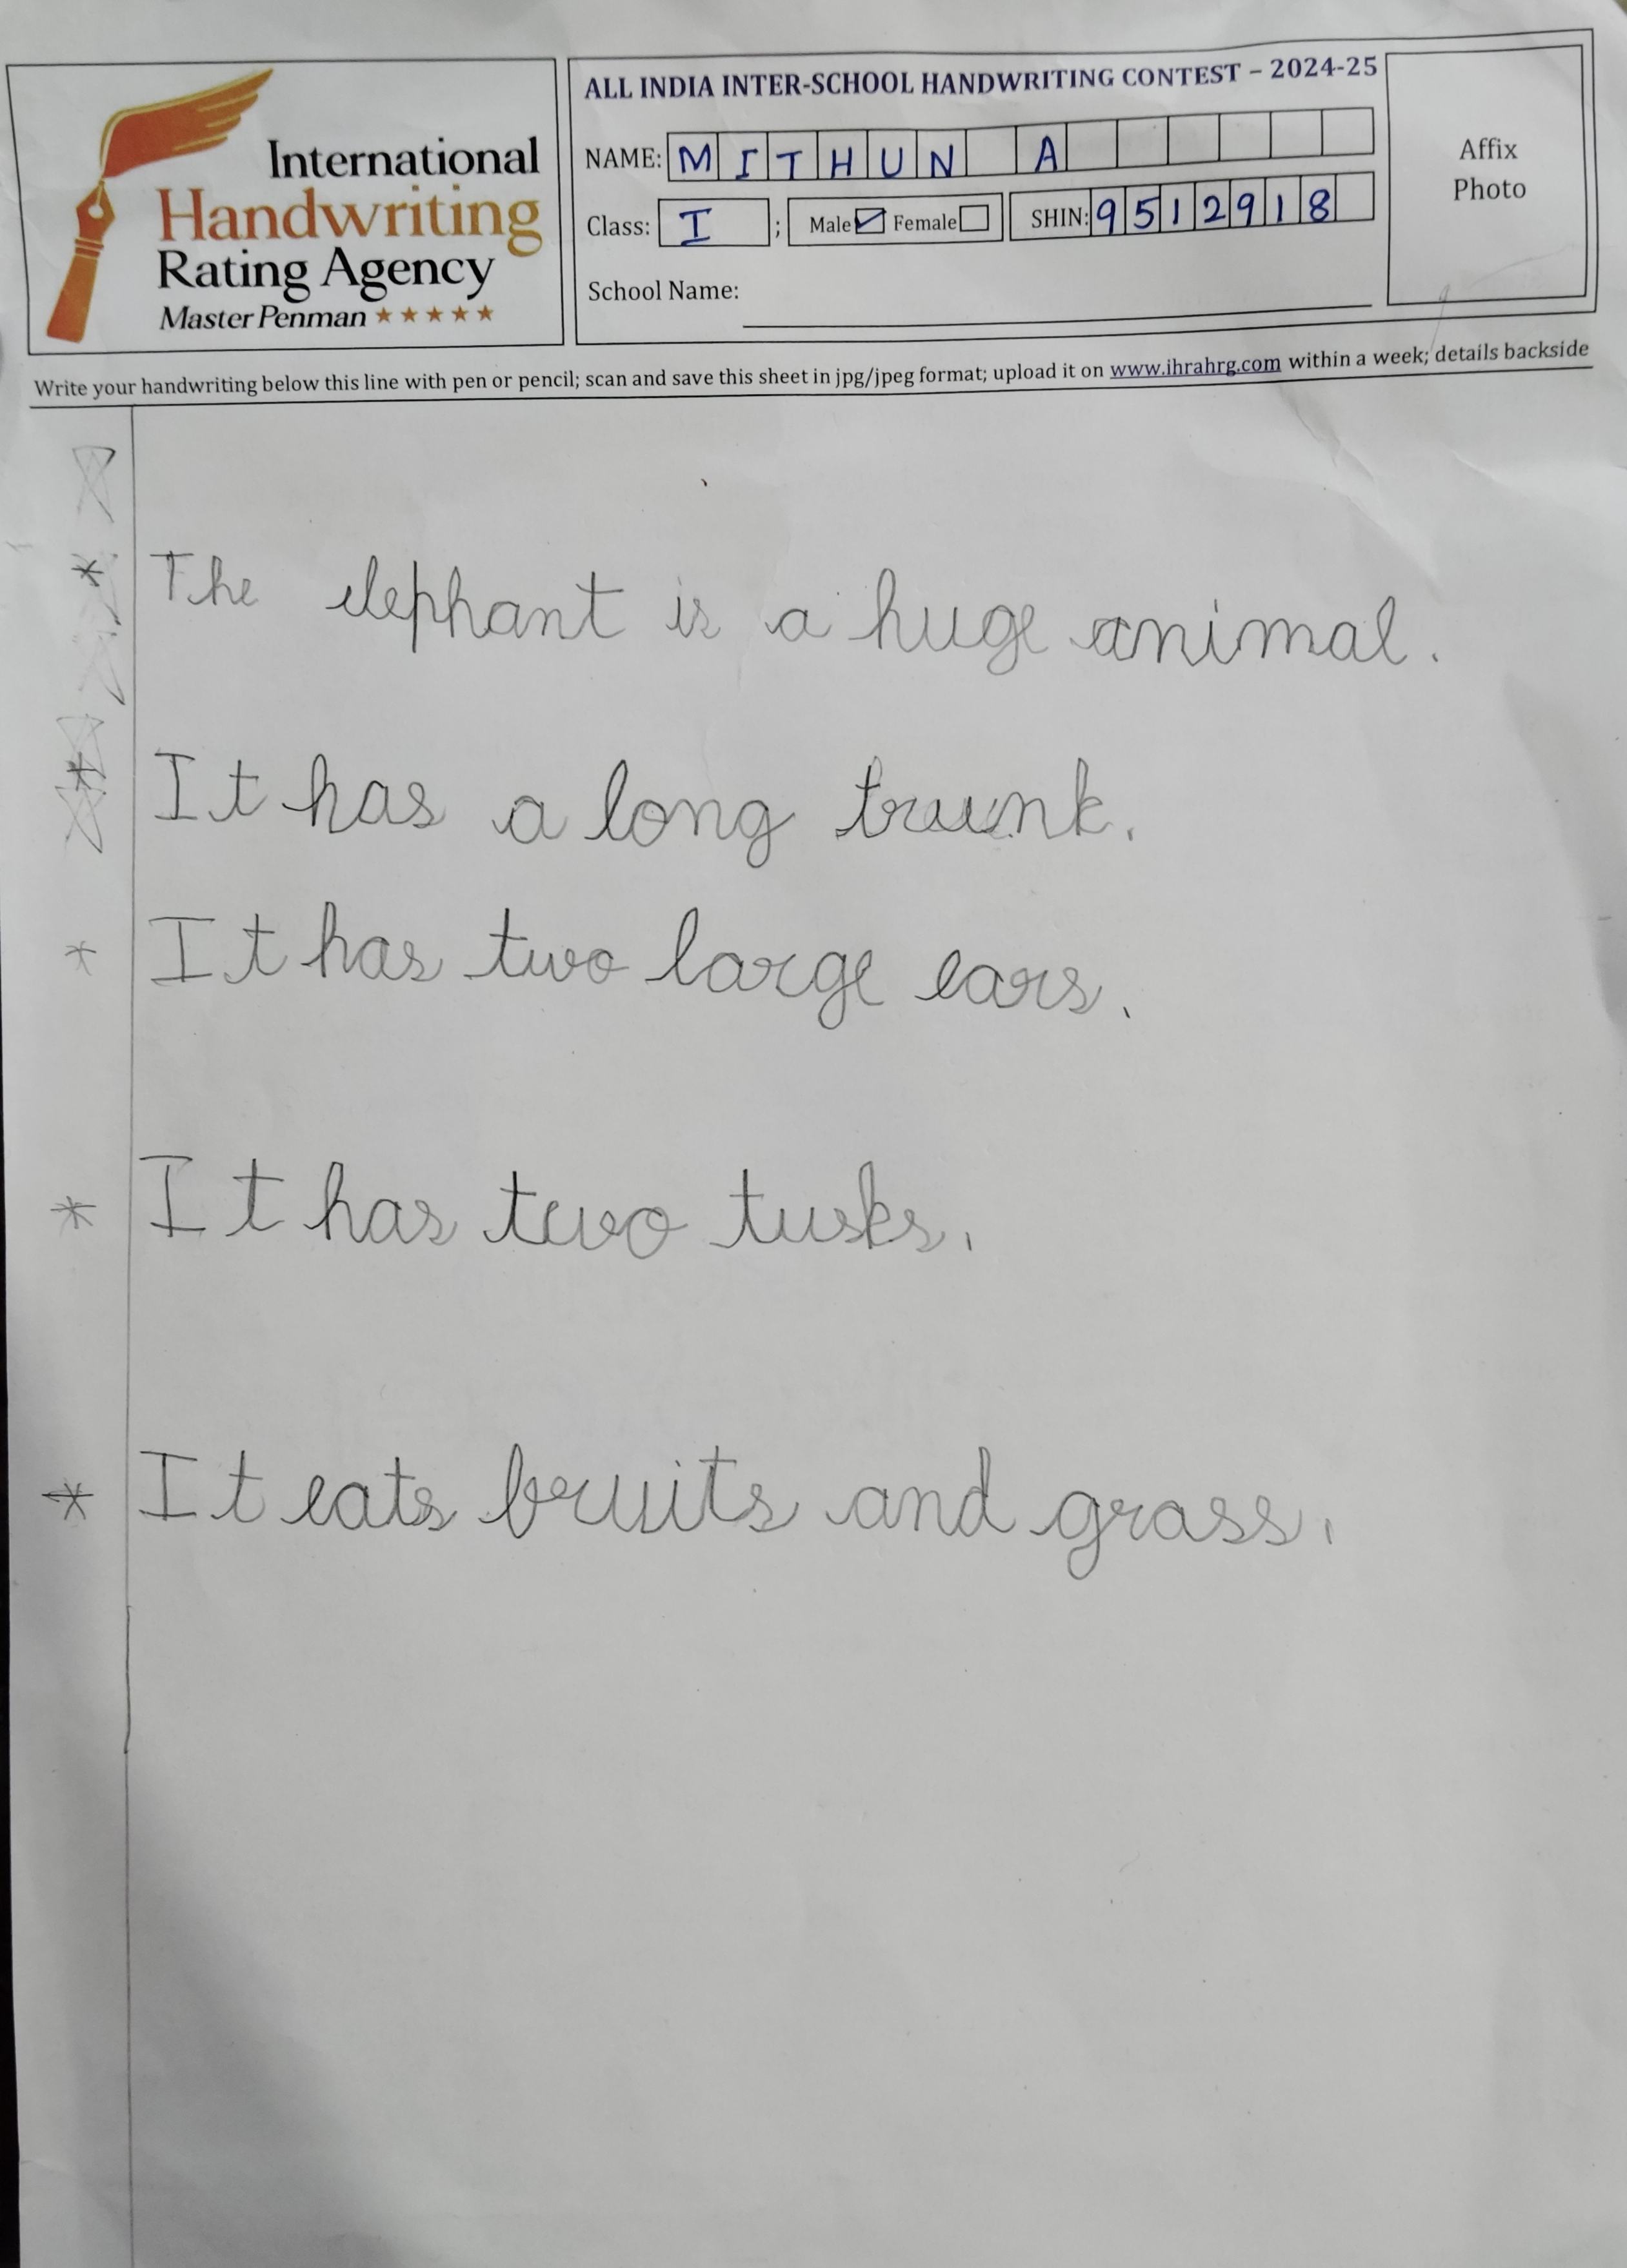 International
Handwriting
Rating Agency
Master Penman ★★★★★
ALL INDIA INTER-SCHOOL HANDWRITING CONTEST – 2024-25
NAME: MITHUN A
Class: I ; Male ☑ Female ☐ SHIN: 9512918
School Name:
Affix
Photo
Write your handwriting below this line with pen or pencil; scan and save this sheet in jpg/jpeg format; upload it on www.ihrahrg.com within a week; details backside
* The elephant is a huge animal.
* It has a long trunk.
* It has two large ears.
* It has two tusks.
* It eats bruits and grass.